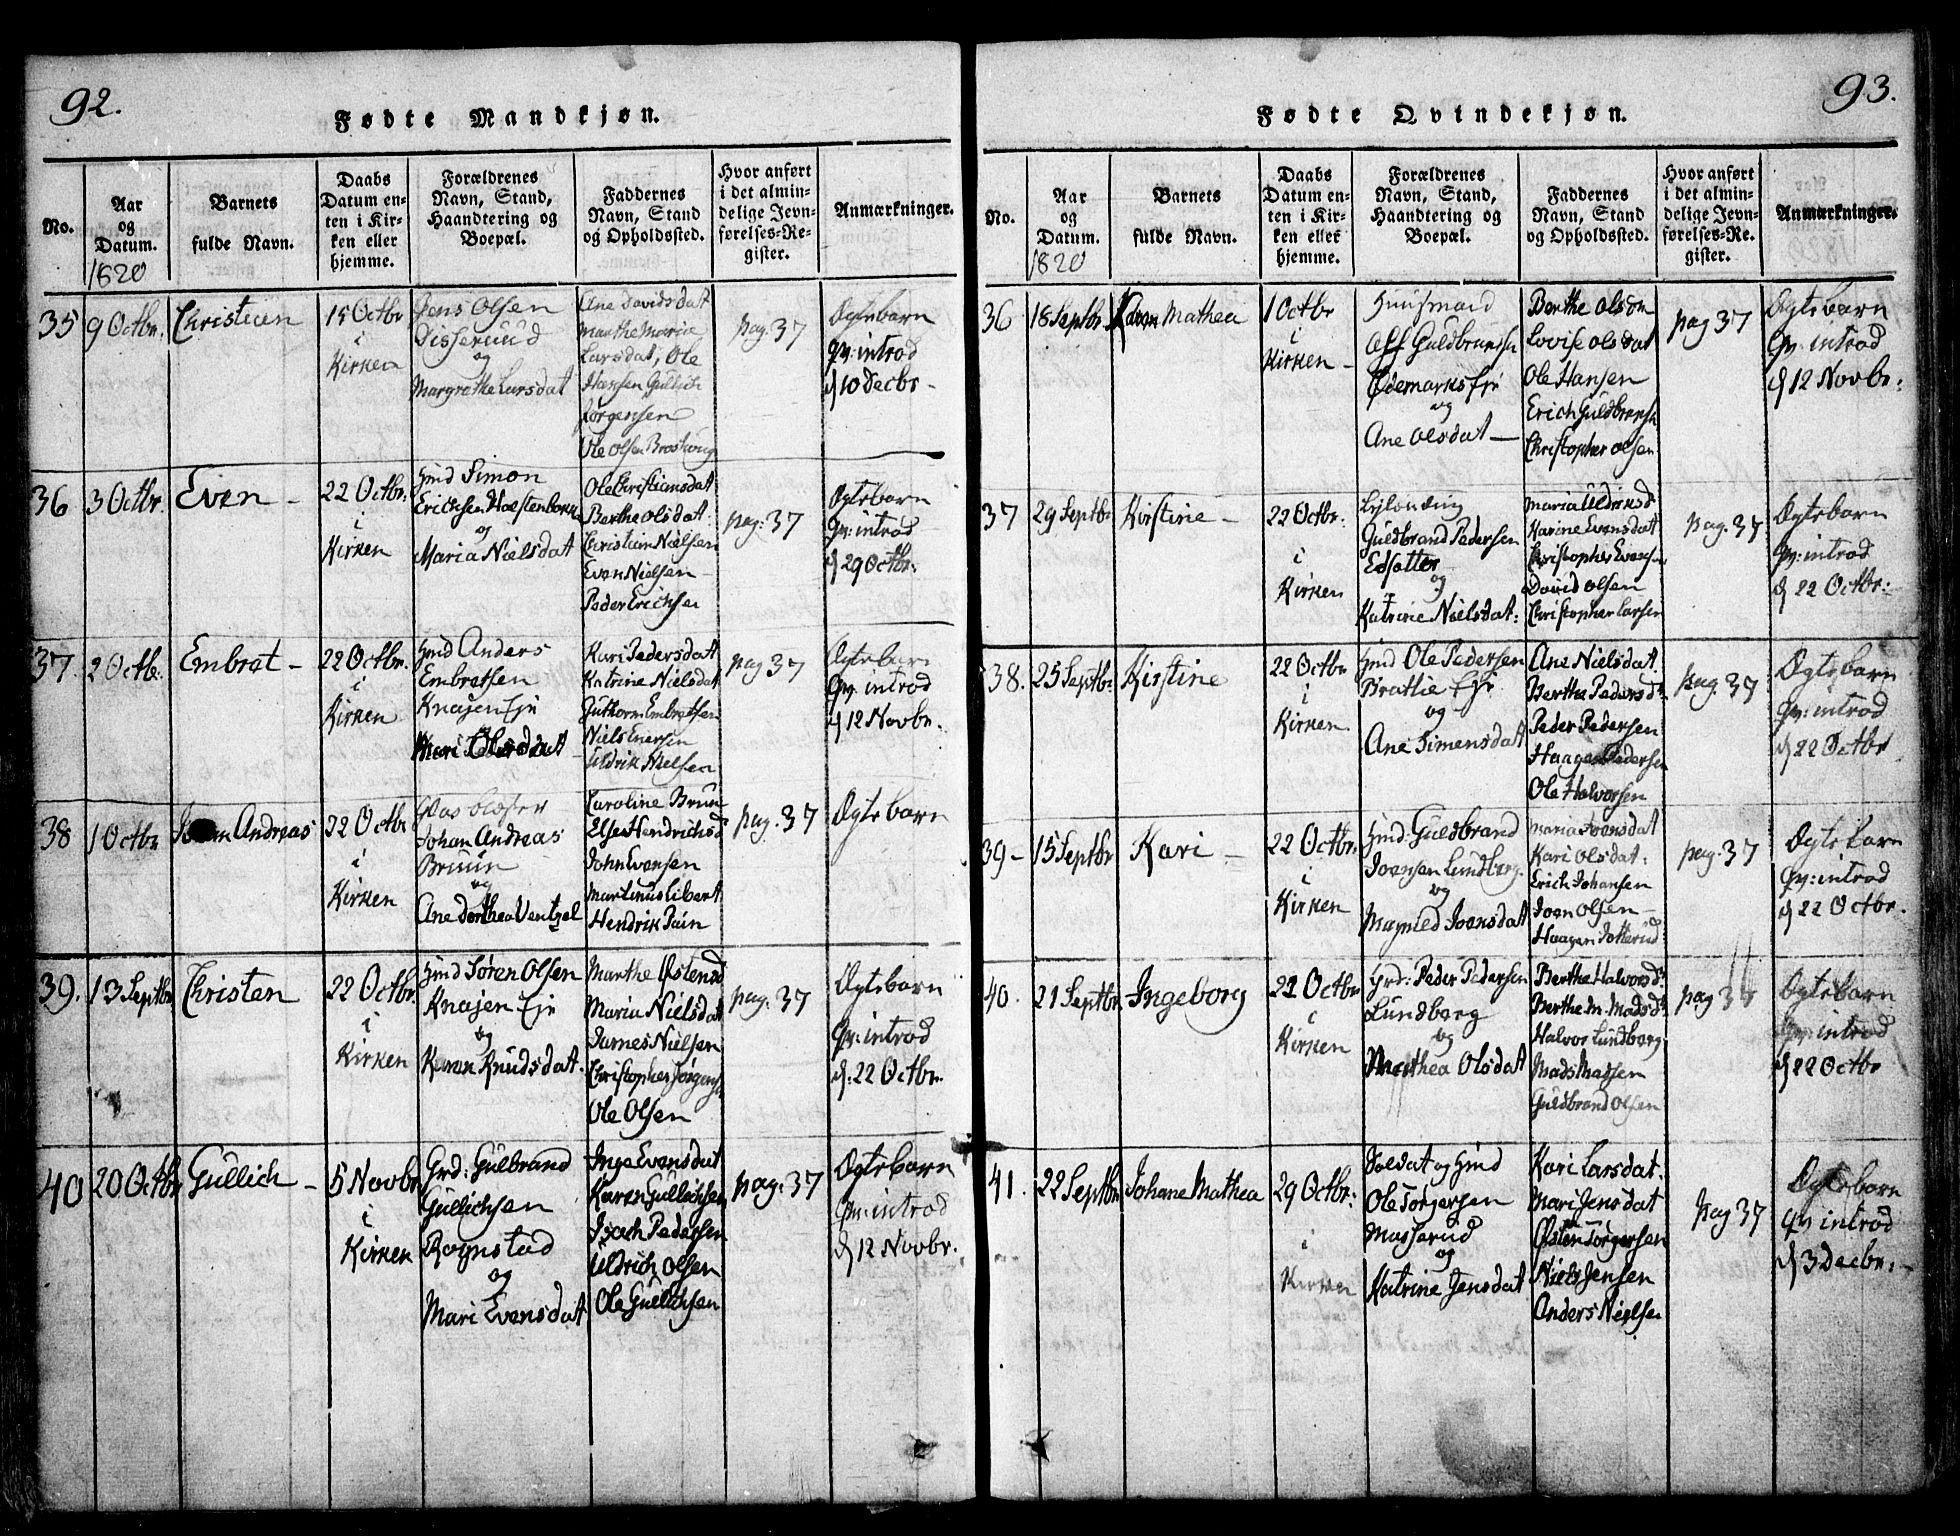 92.
Fødte Mandkjøn.
No.
Aar
og
Datum.
1820
Barnets
fulde Navn.
Daabs
Datum en-
ten i Kir-
ken eller
hjemme.
Forældrenes
Navn, Stand,
Haandtering og
Boepæl.
Faddernes
Navn, Stand
og Opholdssted.
Hvor anført
i det almin-
delige Jevn-
førelses-Re-
gister.
Anmærkninger.
35
9 Octbr.
Christian
15 Octbr
i
Kirken
Jens Olsen
Disserud
og
Margrethe Larsdat
Ane Davidsdat
Marthe Maria
Larsdat, Ole
Hansen, Gullich
Jørgensen
Ole Olsen
pag: 37
Ægtebarn
Qv: introd
d 10 Decbr -
36
3 Octbr.
Even -
22 Octbr:
i
Kirken
Hmd Simon
Erichsen
og
Maria Nielsdat
Ole Christiansdat
Berthe Olsdat
Christian Nielsen
Even Nielsen -
Peder Erichsen
pag: 37
Ægtebarn
Qv: introd
d 29 Octbr:
37.
2 Octb:
Embret -
22 Octbr.
i
Kirken
Hmd Anders
Embretsen
Knajen Eje
og
Kari Pedersdat
Katrine Nielsdat
Guthorm Embretsen
Niels Enersen
Uldrik Nielsen
pag 37
Ægtebarn
Qv: introd
d 12 Novbr.
38
1 Octbr
Andreas
22 Octbr
i
Kirken
Glasblæser
Johan Andreas
Bruun
og
Ane Dorthea Ventzel
Caroline Bruun
Else Hendrichsd
John Evensen
Martinus Libert
Hendrik
pag: 37
Ægtebarn
39.
13 Septbr
Christen
22 Octbr.
i
Kirken
Hmd Søren Olsen
Knajen Eje
og
Karen Knudsdat.
Marthe Østensd
Maria Nielsdat
James Nielsen
Christopher Jørgens
Ole Olsen
pag: 37
Ægtebarn
Qv: introd
d: 22 Octbr.
40
20 Octbr
Gullich -
5 Novbr
i
Kirken
Grd: Gulbrand
Gullichsen
Rognstad
og
Mari Evensdat
Inge Evensdat
Karen Gullichsen
Isach Pedersen
Uldrich Olsen
Ole Gullichsen
pag: 37
Ægtebarn
Qv: introd
d 12 Novbr.
93.
Fødte Qvindekjøn.
No.
Aar
og
Datum.
1820
Barnets
fulde Navn.
Daabs
Datum en-
ten i Kir-
ken eller
hjemme.
Forældrenes
Navn, Stand,
Haandtering og
Boepæl.
Faddernes
Navn, Stand
og Opholdssted.
Hvor anført
i det almin-
delige Jevn-
førelses-Re-
gister.
Anmærkninger.
36
18 Septbr
Karen Mathea
1 Octbr
i
Kirken -
Huusmand
Guldbrands
Ødemarks Eje
og
Ane Olsdat -
Berthe Olsdn
Lovise Olsdat
Ole Hansen
Erich Guldbrans
Christopher Olsen
pag 37
Ægtebarn
Qv: introd
d 12 Novbr:
37
29 Septbr
Kirstine -
22 Octbr:
i
Kirken
Lejlænding
Guldbrand Pedersen
Edsætter
og
Katrine Nielsdat:
Maria Uldriksd
Karine Evensdat
Christopher Evensen
David Olsen
Christopher Larsen
pag. 37
Ægtebarn
Qv: introd
d 22 Octbr:
38.
25 Septbr
Kirstine
22 Octbr
i
Kirken
Hmd Ole Pedersen
Bratlie Eje
og
Ane Simensdat
Ane Nielsdat
Berthe Pedersd
Peder Pedersen
Haagen Pedersen
Ole Halvorsen
pag. 37
Ægtebarn
Qv: introd
d 22 Octbr
39 -
15 Septbr
Kari -
22 Octbr:
i
Kirken
Hmd: Guldbrand
Joensen Lundberg.
og
Magnild Joensdat
Maria Joensdat
Kari Olsdat:
Erich Johansen
Joen Olsen -
Haagen
pag. 37
Ægtebarn
Qv: introd
d 22 Octbr.
40.
21 Septbr.
Ingeborg
22 Octbr
i
Kirken
Grd: Peder Pedersen
Lundberg
og
Marthea Olsdat
Berthe Halvorsd
Berthe M. Madsd
Halvor Lundberg
Mads Madsen
Guldbrand Olsen
pag 37
Ægtebarn
Qv: introd
d 22 Octbr
41.
22 Septbr
Johane Mathea
29 Octbr:
i
Kirken
Soldat og Hmd
Ole Torgersen
Masserud
og
Katrine Jensdat
Kari Larsdat.
Mari Jensdat
Østen Torgersen
Niels Jensen
Anders Nielsen
pag 37
Ægtebarn
qv introd
d 3 Decbr: -